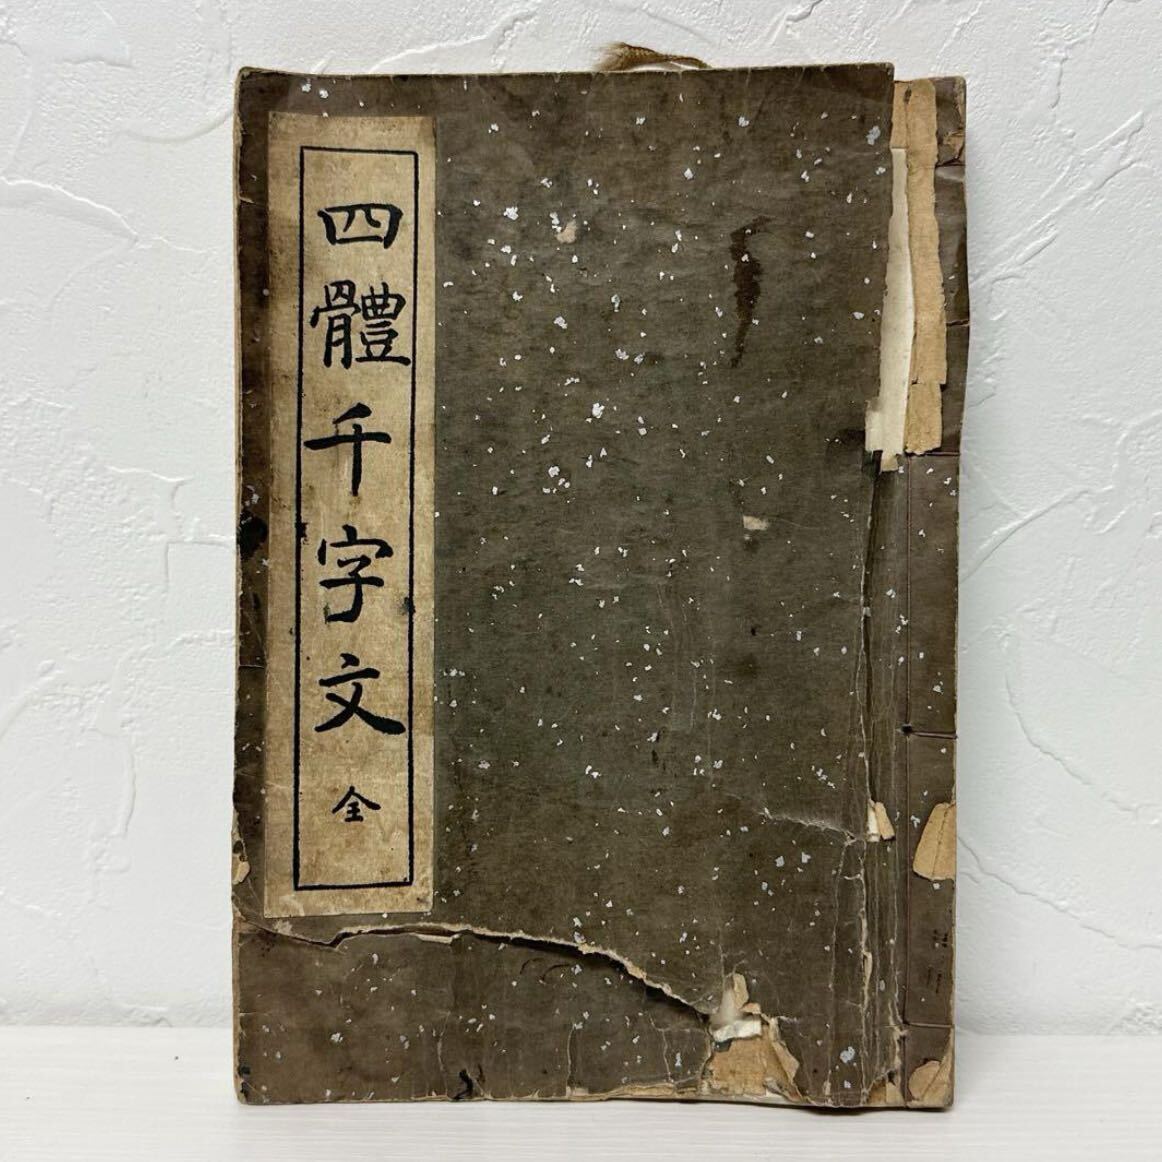 四體千字文 全